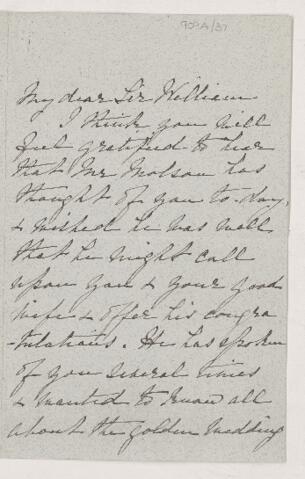 909A/37
My dear Sir William
I think you will
feel gratified to hear
that Mr Molson has
thought of you to-day,
& wished he was well
that he might call
upon you & your good
wife & offer his congra
-tulations. He has spoken
of you several times
& wanted to know all
about the golden wedding